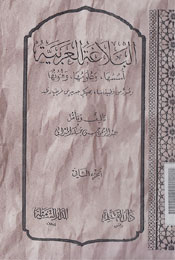 البلاغة العربية
أسسها، وعلومها، وفنونها
تأليف وتأمل
عبد الرحمن حسن حبنكة الميداني
الجزء الثاني
دار القلم
الدار الشامية